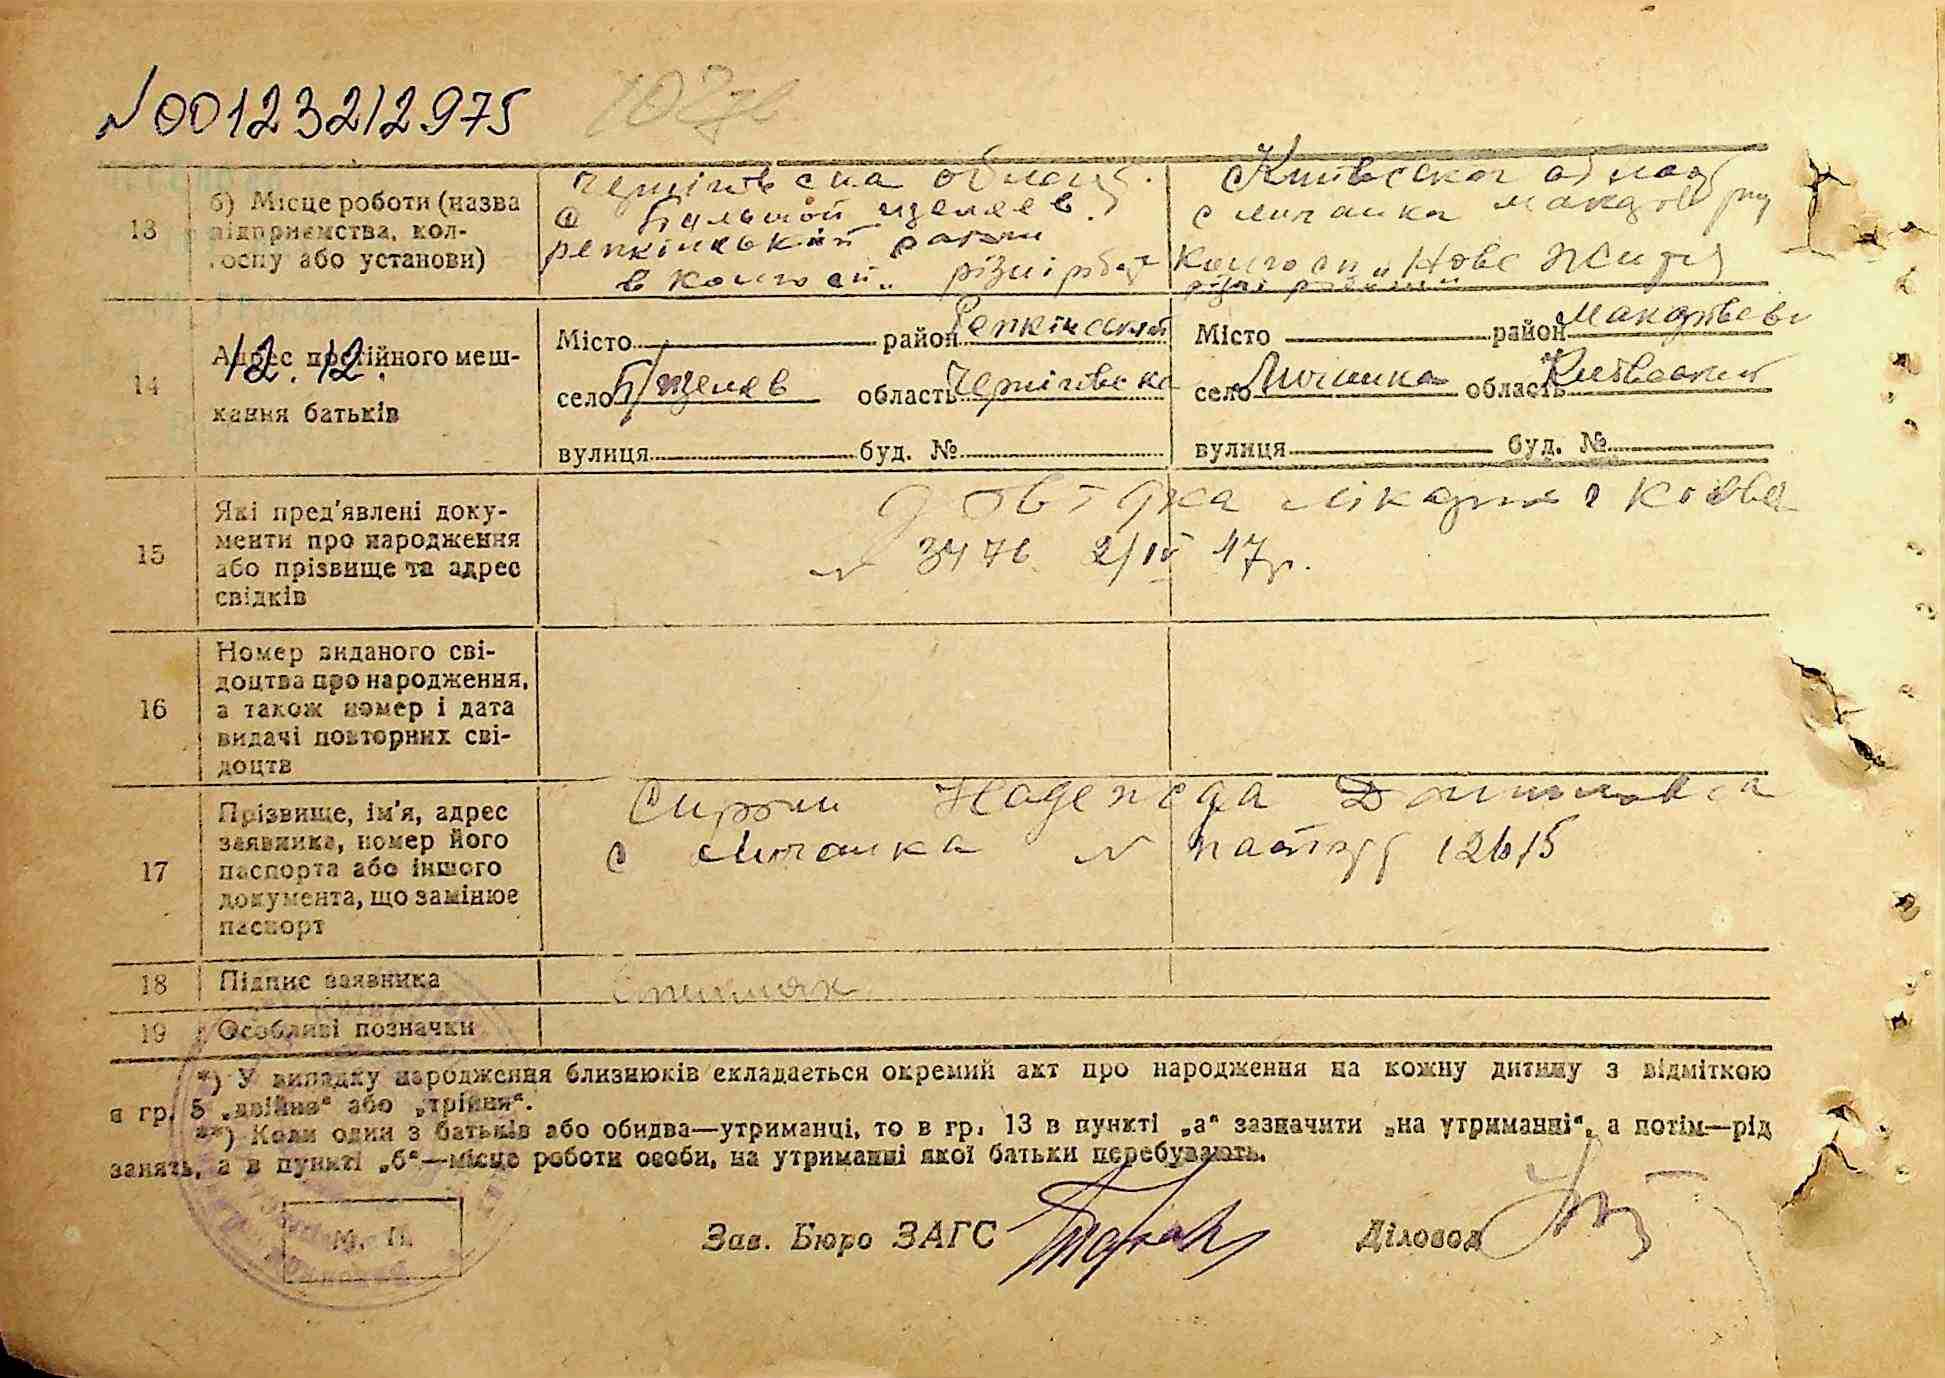 №001232/2975
13
б) Місце роботи (назва підприємства, колгоспу або установи)
Чернігівська област.
с Большой щеляев
репкінський район
в колгосп. різні роб
Київська област
с Личанка Макарів рну
Колгосп „Нове життя
різні
14
Адрес постійного мешкання батьків
12.12.
Місто район Репкінський
село Б/щеляев область Чернігівська
вулиця буд. №
Місто район Макарівськ
село Личанка область Київський
вулиця буд. №
15
Які пред'явлені документи про народження або прізвище та адрес свідків
Довідка лікарні
№ 3476 2/IV 47р.
16
Номер виданого свідоцтва про народження, а також номер і дата видачі повторних свідоцтв
17
Прізвище, ім'я, адрес заявника, номер його паспорта або іншого документа, що замінює паспорт
Надежда
с Личанка № паспорт 12615
18
Підпис заявника
19
Особливі позначки
*) У випадку народження близнюків складається окремий акт про народження на кожну дитину з відміткою
в гр. 5 „двійня“ або „трійня“.
**) Коли один з батьків або обидва—утриманці, то в гр. 13 в пункті „а“ зазначити „на утриманні“, а потім—рід
занять, а в пункті „б“—місце роботи особи, на утриманні якої батьки перебувають.
М. П.
Зав. Бюро ЗАГС
Діловод